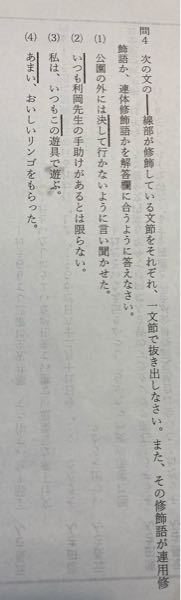 問4　次の文の━━線部が修飾している文節をそれぞれ、一文節で抜き出しなさい。また、その修飾語が連用修
飾語か、連体修飾語かを解答欄に合うように答えなさい。
(1)　公園の外には決して行かないように言い聞かせた。
(2)　いつも利岡先生の手助けがあるとは限らない。
(3)　私は、いつもこの遊具で遊ぶ。
(4)　あまい、おいしいリンゴをもらった。